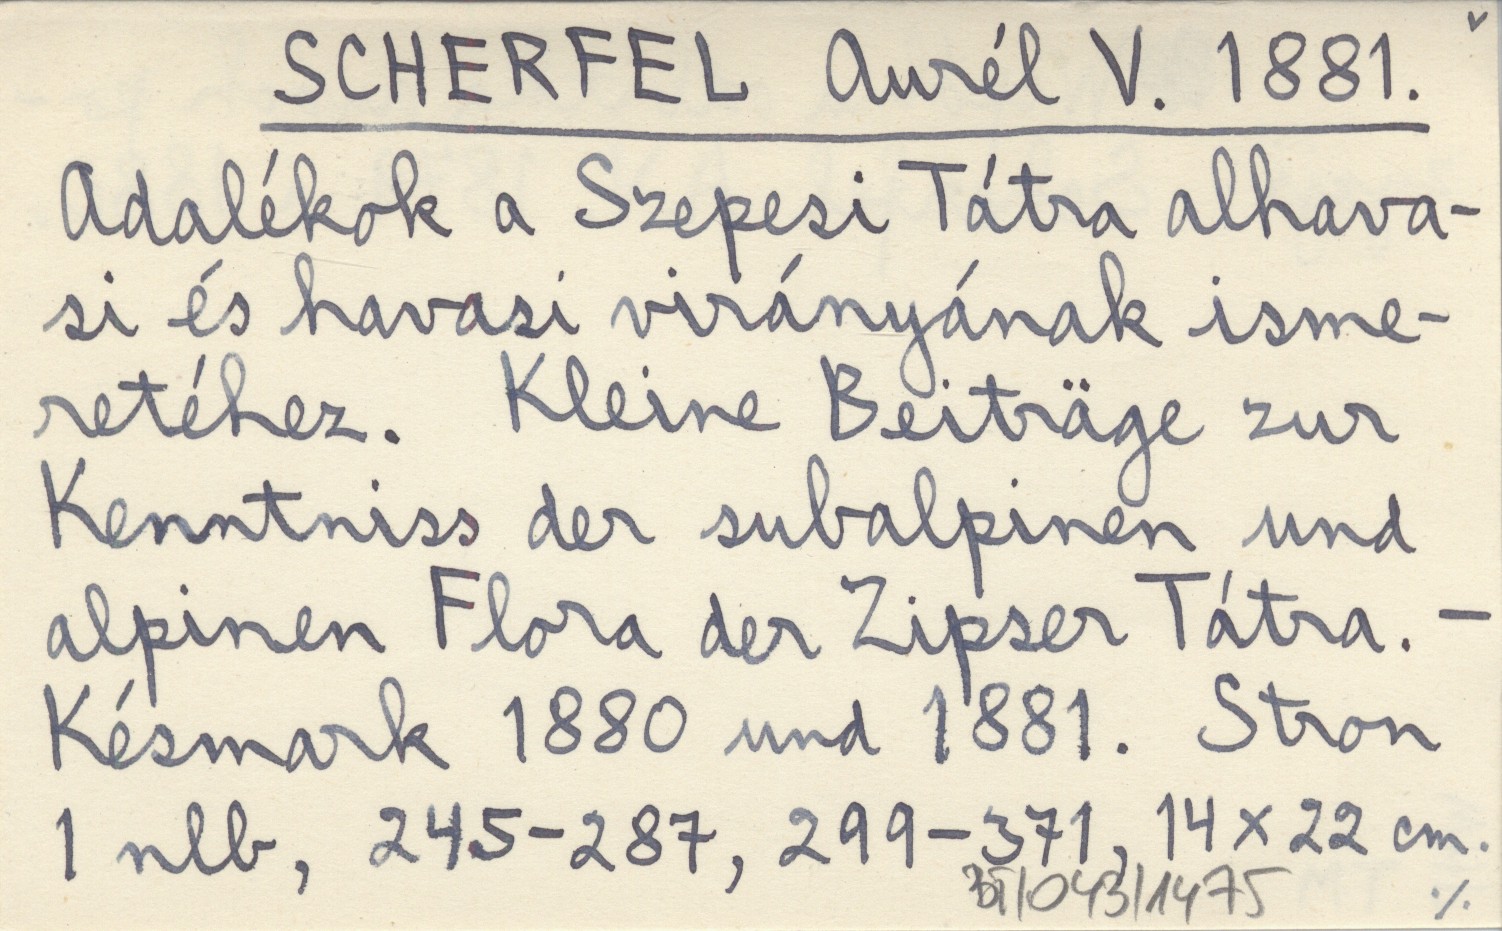 SCHERFEL Aurél V. 1881.
Adalékok a Szepesi Tátra alhava-
si és havasi virányának isme-
retéhez. Kleine Beiträge zur
Kenntniss der subalpinen und
alpinen Flora der Zipser Tátra. –
Késmark 1880 und 1881. Stron
1 nlb, 245-287, 299-371, 14 x 22 cm.
/043/1475 ./.